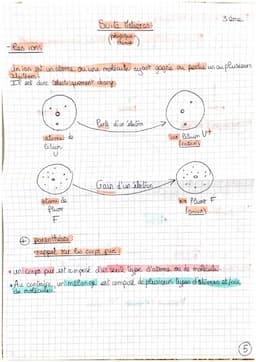 3ème
Suite Notions
(physique
chimie)
- Les ions
Un ion est un atome ou une molécule ayant gagné ou perdu un ou plusieurs
électrons.
Il est donc électriquement chargé
Perte d'un électron
atome de
Lithium
ion lithium
(cation)
Gain d'un électron
atome de
Fluor
F
ion Fluor F
(anion)
parenthèse
rappel sur les corps purs
• un corps pur est composé d'un seul type d'atome ou de molécule.
• Au contraire, un mélange est composé de plusieurs types d'atomes et/ou
de molécules.
5